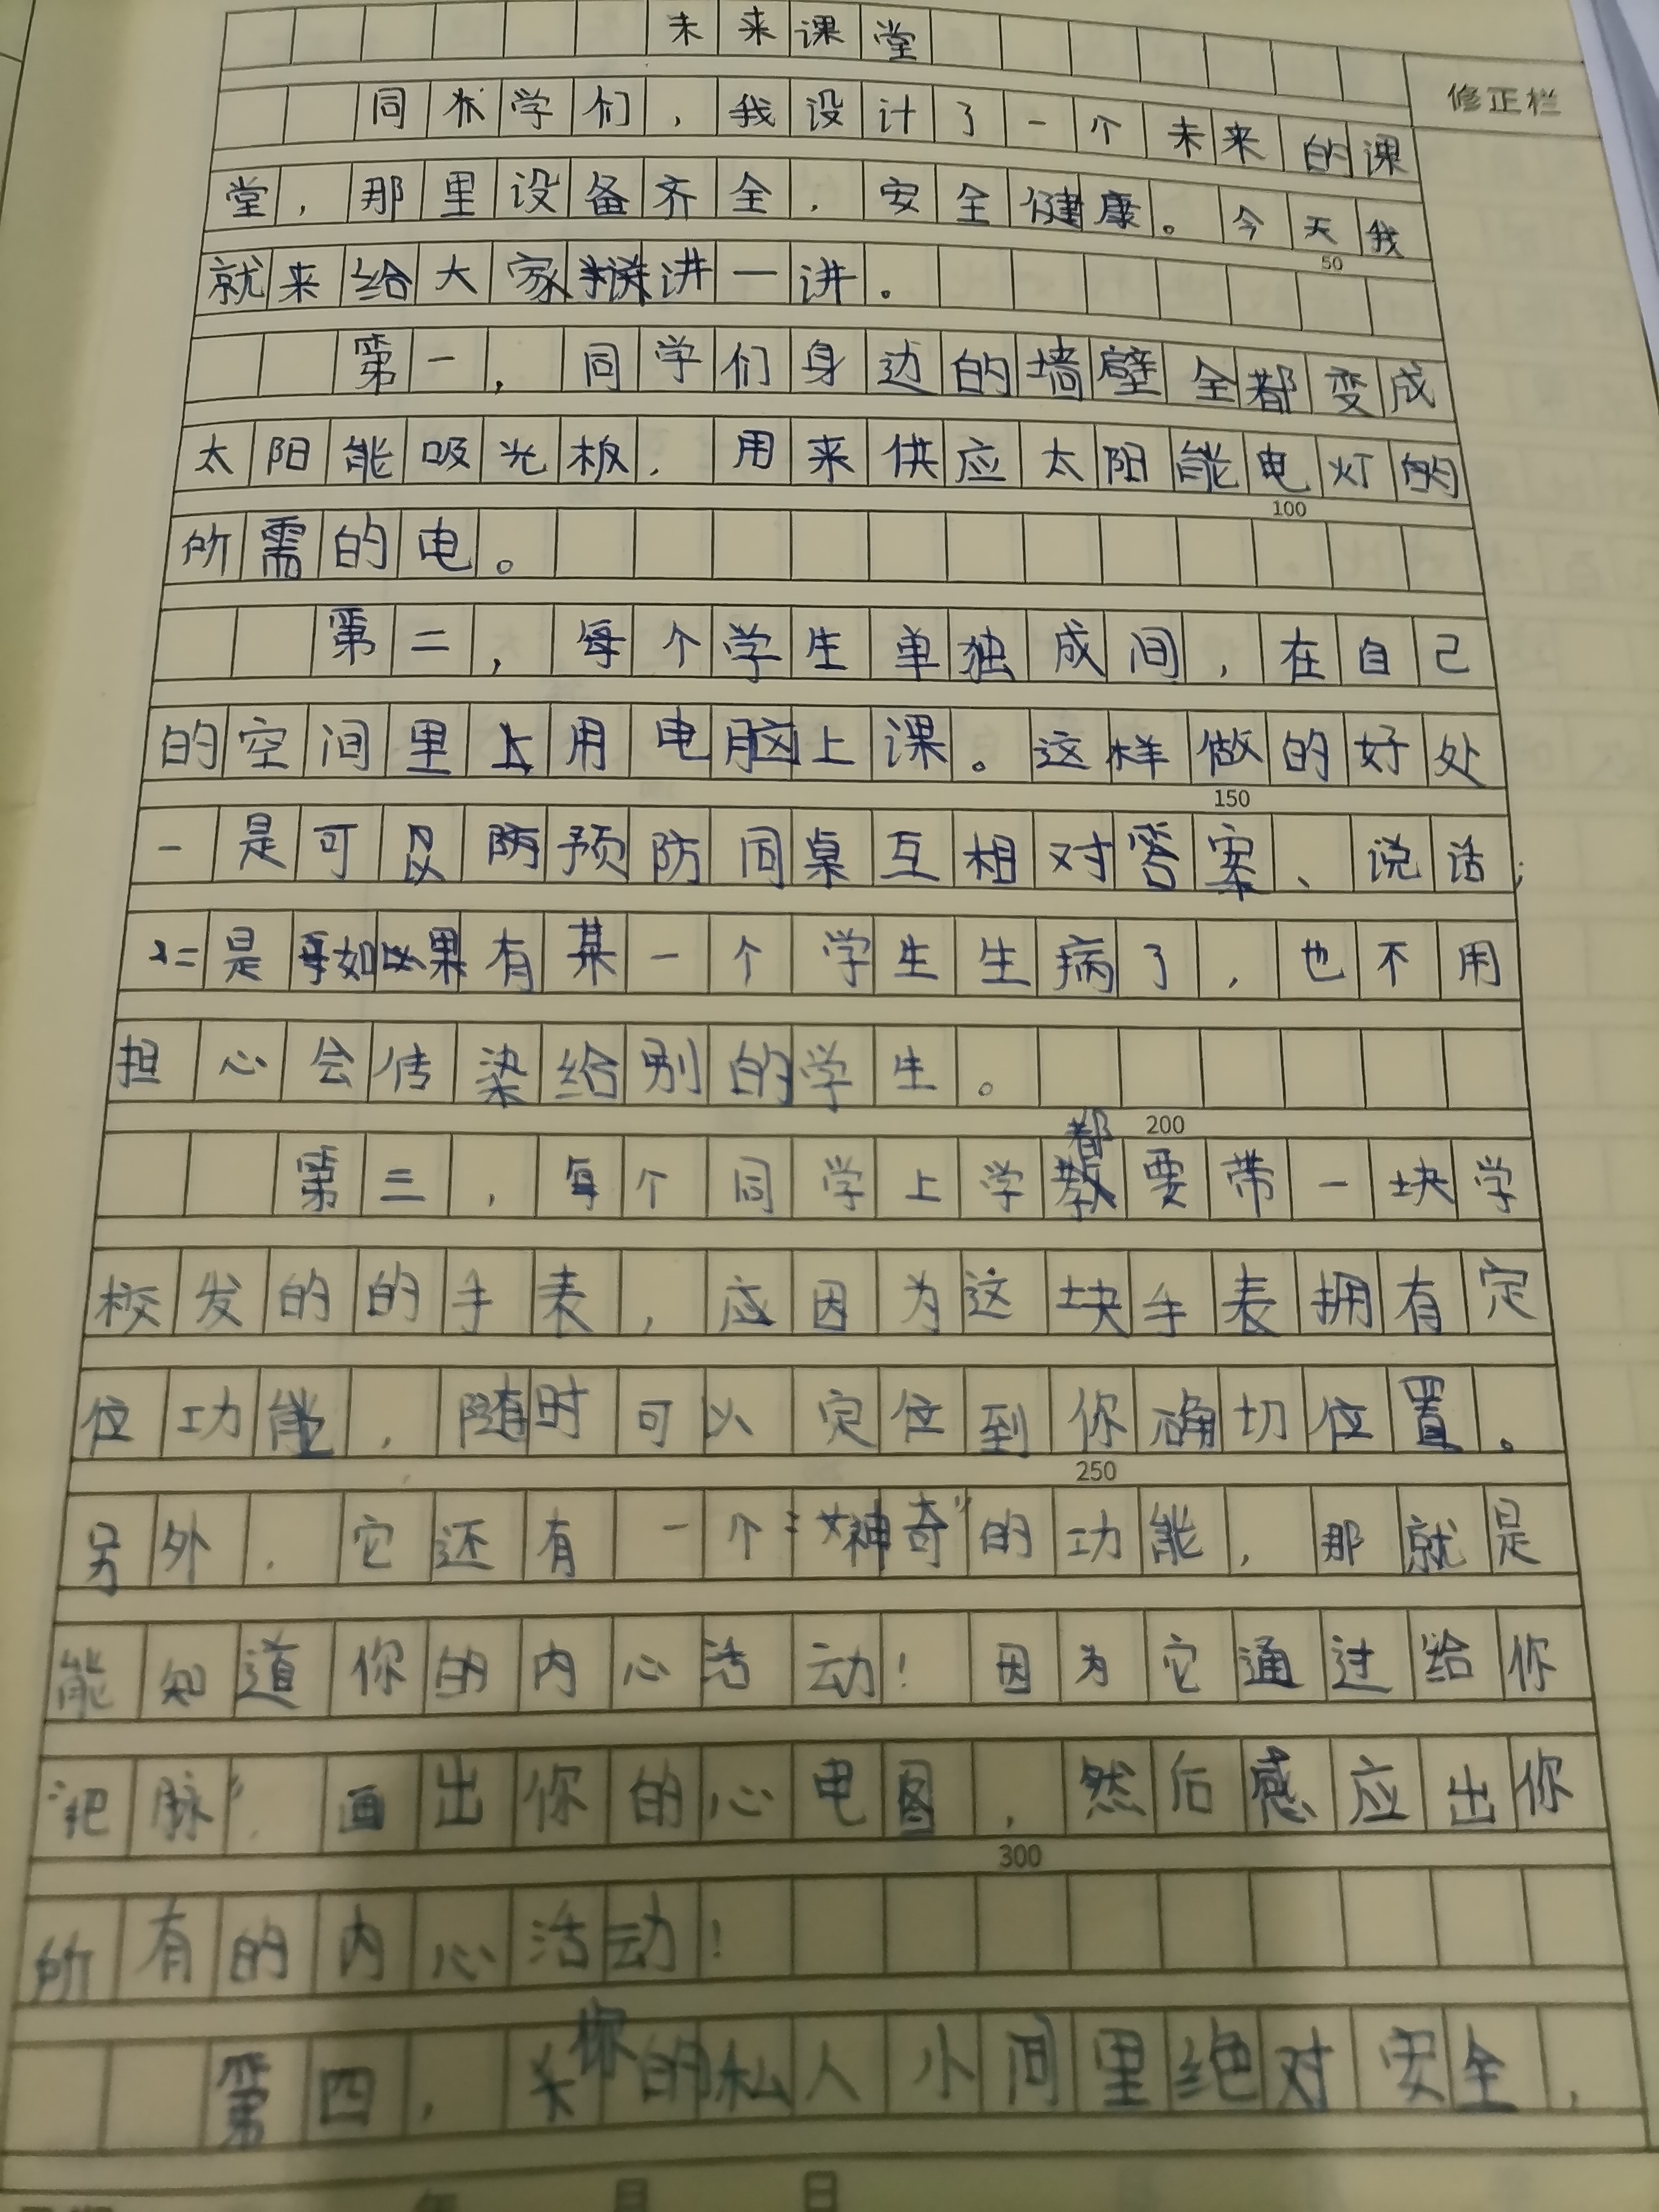 未来课堂
修正栏
同学们，我设计了一个未来的课
堂，那里设备齐全，安全健康。今天我
50
就来给大家讲一讲。
第一，同学们身边的墙壁全都变成
太阳能吸光板，用来供应太阳能电灯的
100
所需的电。
第二，每个学生单独成间，在自己
的空间里用电脑上课。这样做的好处
150
一是可以预防同桌互相对答案、说话；
二是如果有某一个学生生病了，也不用
担心会传染给别的学生。
200
第三，每个同学上学都要带一块学
校发的的手表，因为这块手表拥有定
位功能，随时可以定位到你确切位置。
250
另外，它还有一个“神奇”的功能，那就是
能知道你的内心活动！因为它通过给你
“把脉”，画出你的心电图，然后感应出你
300
所有的内心活动！
第四，你的私人小间里绝对安全，
年 月 日